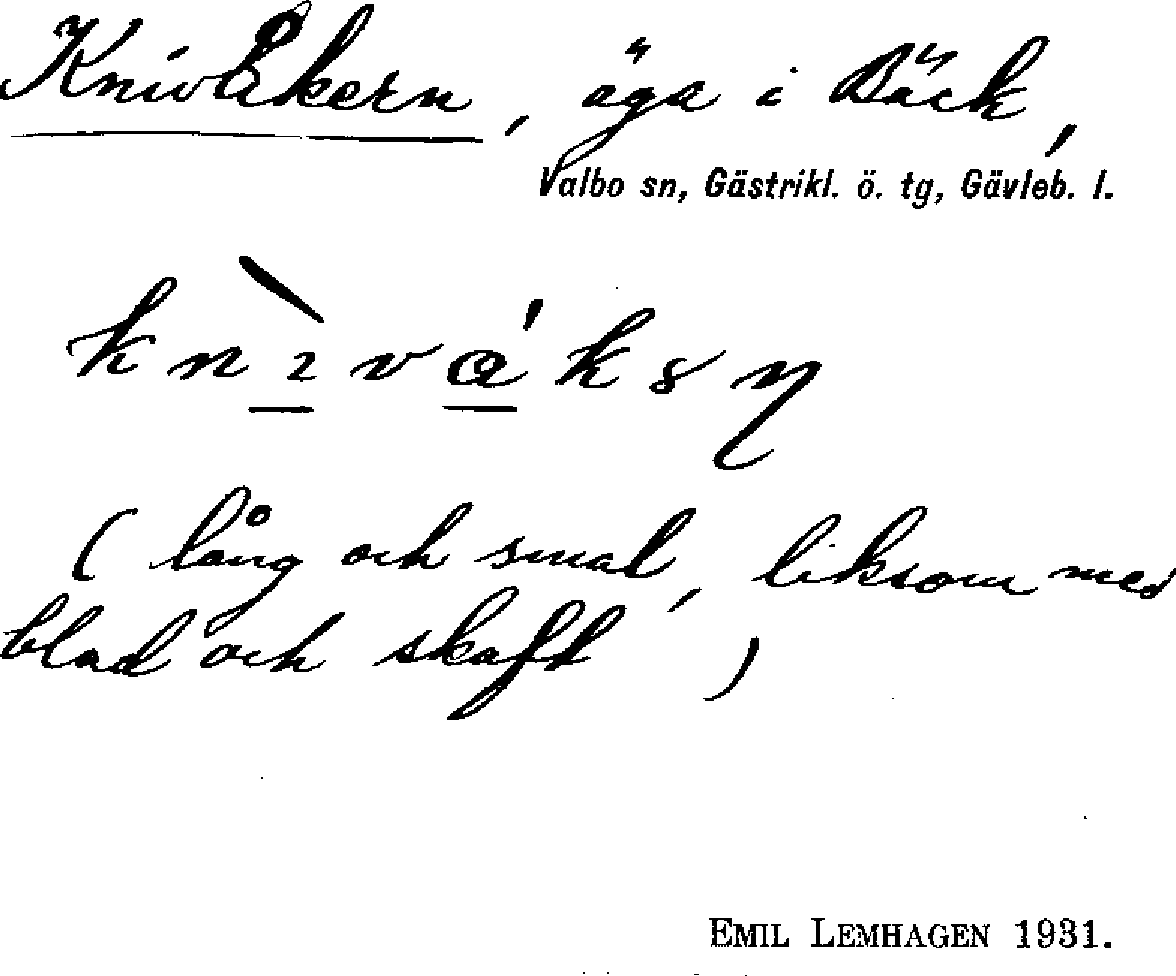 Knivåkern, äga i Bäck,
Valbo sn, Gästrikl. ö. tg, Gävleb. l.
(lång och smal, liksom med
blad och skaft)
EMIL LEMHAGEN 1931.